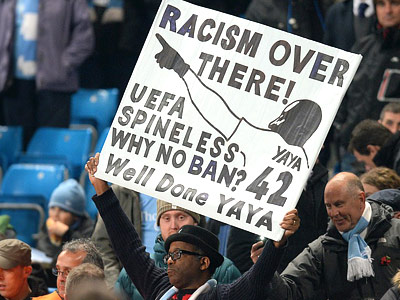 RACISM OVER
THERE!
UEFA
SPINELESS
WHY NO BAN?
YAYA
42
Well Done YAYA